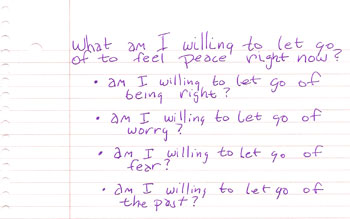 What am I willing to let go
of to feel peace right now?
• am I willing to let go of
being right?
• am I willing to let go of
worry?
• am I willing to let go of
fear?
• am I willing to let go of
the past?